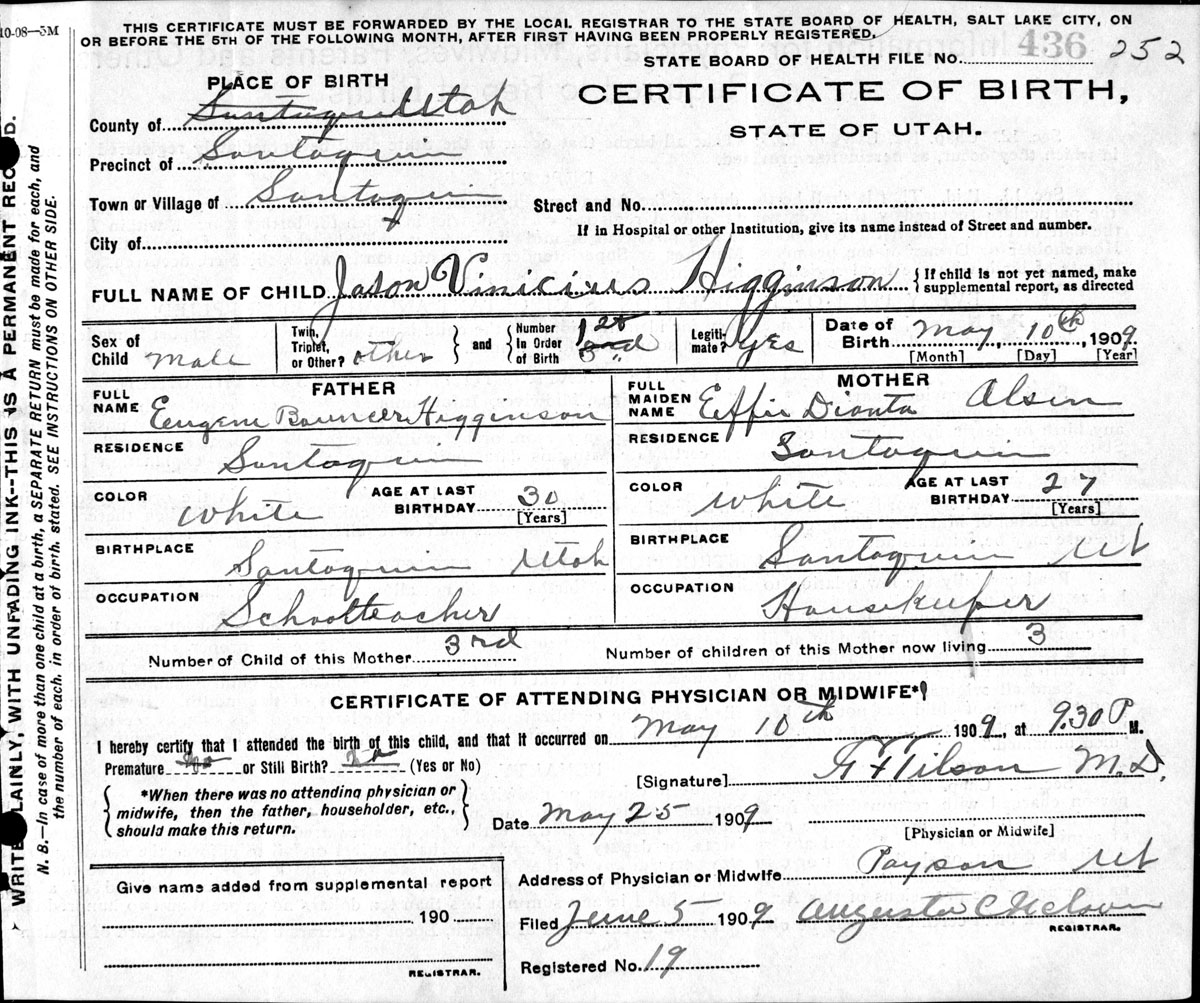 10-08—3M
THIS CERTIFICATE MUST BE FORWARDED BY THE LOCAL REGISTRAR TO THE STATE BOARD OF HEALTH, SALT LAKE CITY, ON
OR BEFORE THE 5TH OF THE FOLLOWING MONTH, AFTER FIRST HAVING BEEN PROPERLY REGISTERED.
STATE BOARD OF HEALTH FILE No. 436 252
PLACE OF BIRTH
CERTIFICATE OF BIRTH,
STATE OF UTAH.
County of Santaquin Utah
Precinct of Santaquin
Town or Village of Santaquin
Street and No.
If in Hospital or other Institution, give its name instead of Street and number.
City of
FULL NAME OF CHILD Jason Vinicius Higginson { If child is not yet named, make supplemental report, as directed
Sex of Child Male
Twin, Triplet, or Other? other } and { Number In Order of Birth 1st 3rd
Legitimate? Yes
Date of Birth May, 10th, 1909
[Month] [Day] [Year]
FATHER
FULL NAME Eugene Bouncer Higginson
RESIDENCE Santaquin
COLOR White
AGE AT LAST BIRTHDAY 30
[Years]
BIRTHPLACE Santaquin Utah
OCCUPATION Schoolteacher
MOTHER
FULL MAIDEN NAME Effie Dianta Olsen
RESIDENCE Santaquin
COLOR White
AGE AT LAST BIRTHDAY 27
[Years]
BIRTHPLACE Santaquin Ut
OCCUPATION Housekeeper
Number of Child of this Mother 3rd
Number of children of this Mother now living 3
CERTIFICATE OF ATTENDING PHYSICIAN OR MIDWIFE*
I hereby certify that I attended the birth of this child, and that it occurred on May 10th 1909, at 9.30 P M.
Premature no or Still Birth? no (Yes or No)
{ *When there was no attending physician or midwife, then the father, householder, etc., should make this return. }
[Signature] Tilson M.D.
Date May 25 1909
[Physician or Midwife]
Address of Physician or Midwife Payson Ut
Give name added from supplemental report
190
REGISTRAR.
Filed June 5 1909 Augusta C Nelson
REGISTRAR.
Registered No. 19
WRITE PLAINLY, WITH UNFADING INK--THIS IS A PERMANENT RECORD.
N. B.—In case of more than one child at a birth, a SEPARATE RETURN must be made for each, and
the number of each, in order of birth, stated. SEE INSTRUCTIONS ON OTHER SIDE.